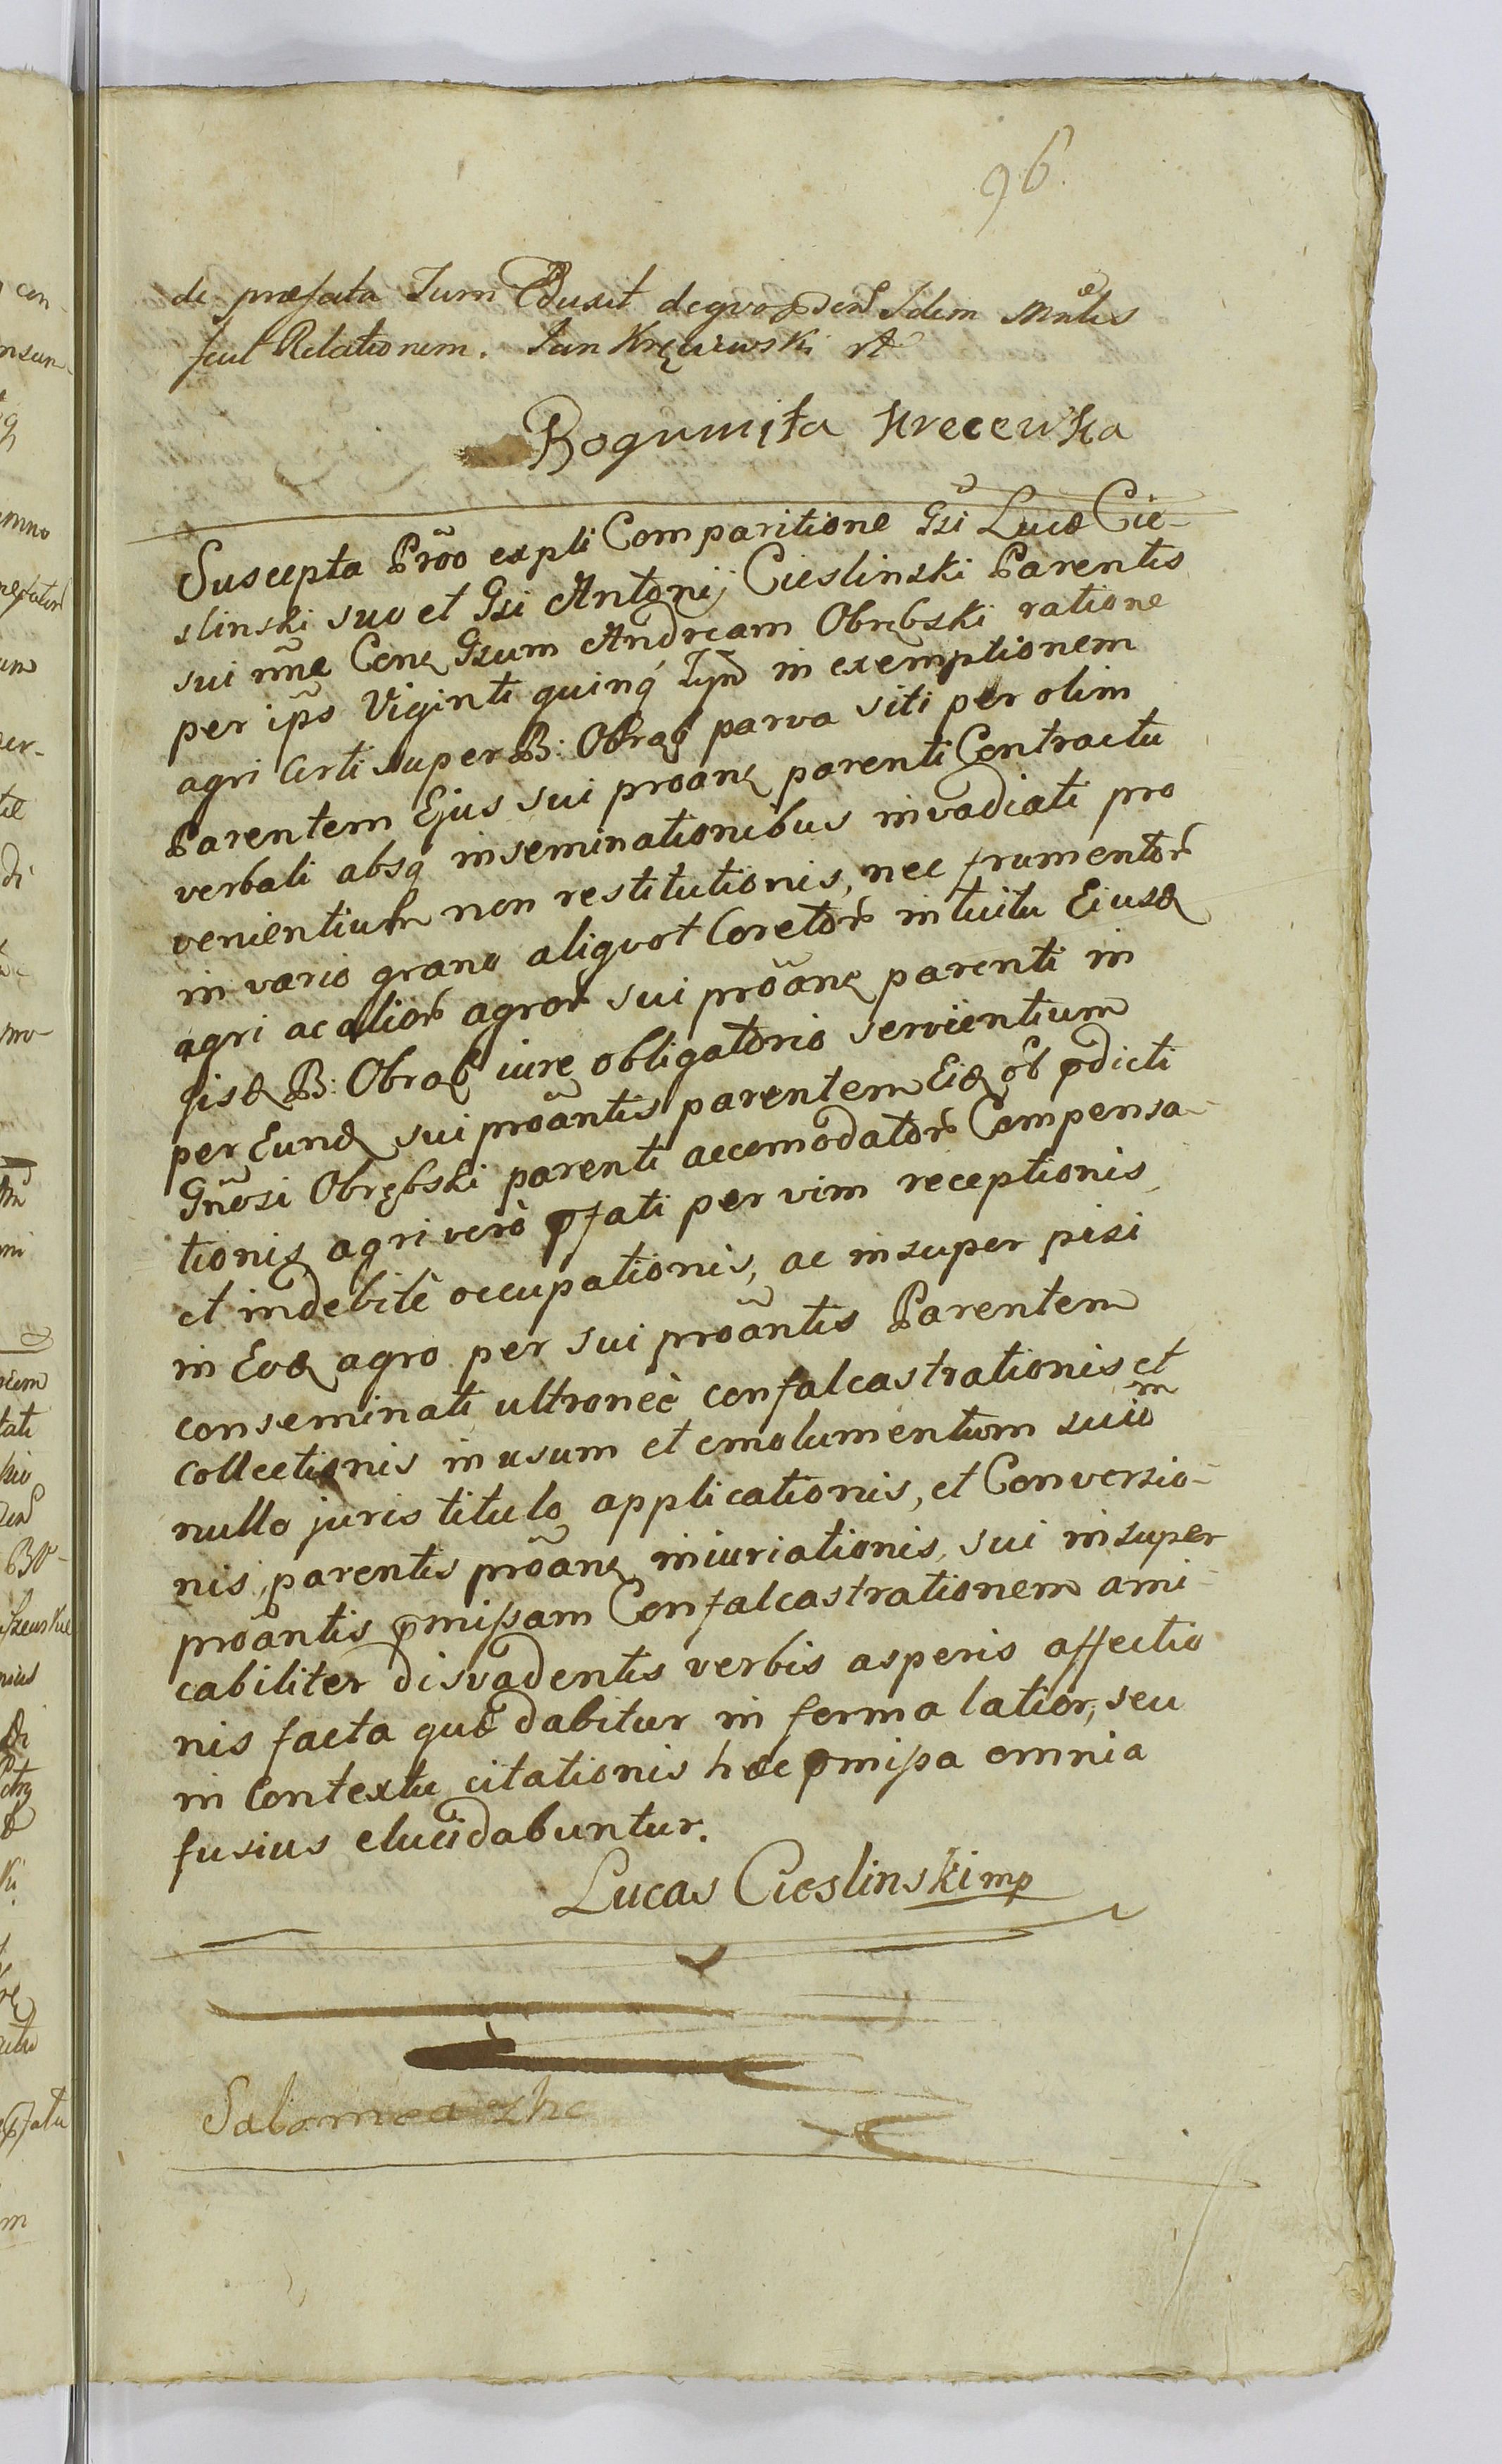 96.
de præfata Sum Eduxit de quo Idem Mntlis
fecit Relationem. Jan Kręczewski
Bogumiła Krecewka
Suscepta Prõo expli Comparitione Gsi Lucæ Cie-
slinski suo et Gsi Antonij Cieslinski Parentis
sui nñe Conq Gsum Andream Obrębski ratione
per ipõ Viginti quinq́ Tyn in exemptionem
agri Certi super B: Obrąb parva siti per olim
Parentem Ejus sui proanq parenti Contractu
verbali absq́ inseminationibus invadiati pro
venientium non restitutionis, nec frumentor
in vario grano aliquot Coretor intuitu Eiusd
agri ac alior agror sui prõanq parenti in
iisd B: Obrąb iure obligatorio servientium
per Eund sui prõantis parentem Eid ob pdicti
Gñosi Obrębski parenti accomodator Compensa-
tionis, agri verò pfati per vim receptionis
et indebitè occupationis, ac insuper pisi
in Eod agro per sui prõantis Parentem
conseminati ultroneè confalcastrationis et
collectionis in usum et emolumentum suum
nullo juris titulo applicationis, et Conversio-
nis, parentis prõanq iniuriationis, sui insuper
prõantis pmißam Confalcastrationem ami-
cabiliter disvadentis verbis asperis affectio
nis facta quæ dabitur in forma latior, seu
in Contextu citationis hæc pmißa omnia
fusius elucidabuntur.
Lucas Cieslinski mp
Salomea